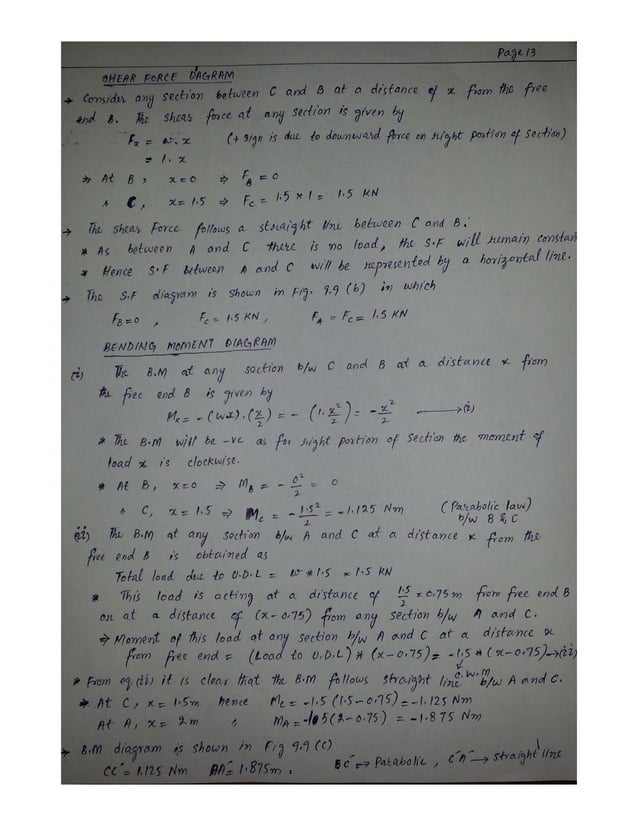 Page 13
SHEAR FORCE DIAGRAM
→ Consider any section between C and B at a distance of x from the free
end B. The shear force at any section is given by
Fx = w.x (+ sign is due to downward force on right portion of section)
= 1.x
⇒ At B, x=0 ⇒ FB = 0
C, x= 1.5 ⇒ FC = 1.5 * 1 = 1.5 KN
→ The shear Force follows a straight line between C and B.
* As between A and C there is no load, the S.F will remain constant
* Hence S.F between A and C will be represented by a horizontal line.
→ The S.F diagram is shown in Fig. 9.9 (b) in which
FB=0, FC = 1.5 KN, FA = FC = 1.5 KN
BENDING MOMENT DIAGRAM
(i) The B.M at any section b/w C and B at a distance x from
the free end B is given by
Mx = - (wx).(x/2) = - (1.x²/2) = - x²/2 → (i)
* The B.M will be -ve as for right portion of section the moment of
load x is clockwise.
* At B, x=0 ⇒ MB = - 0²/2 = 0
C, x = 1.5 ⇒ MC = - 1.5²/2 = -1.125 Nm (Parabolic law) b/w B & C
(ii) The B.M at any section b/w A and C at a distance x from the
free end B is obtained as
Total load due to U.D.L = w*1.5 = 1.5 KN
* This load is acting at a distance of 1.5/2 = 0.75m from free end B
or at a distance of (x-0.75) from any section b/w A and C.
⇒ Moment of this load at any section b/w A and C at a distance x
from free end = (Load to U.D.L) * (x-0.75) = -1.5 * (x-0.75) → (ii)
C.W.M
* From eq (ii) it is clear that the B.M follows straight line b/w A and C.
⇒ At C, x = 1.5m hence MC = -1.5 (1.5-0.75) = -1.125 Nm
At A, x = 2m " MA = -1.5(2-0.75) = -1.875 Nm
→ B.M diagram is shown in Fig 9.9 (c)
CC' = 1.125 Nm AA' = 1.875m. BC' ⇔ Parabolic, C'A' → straight line